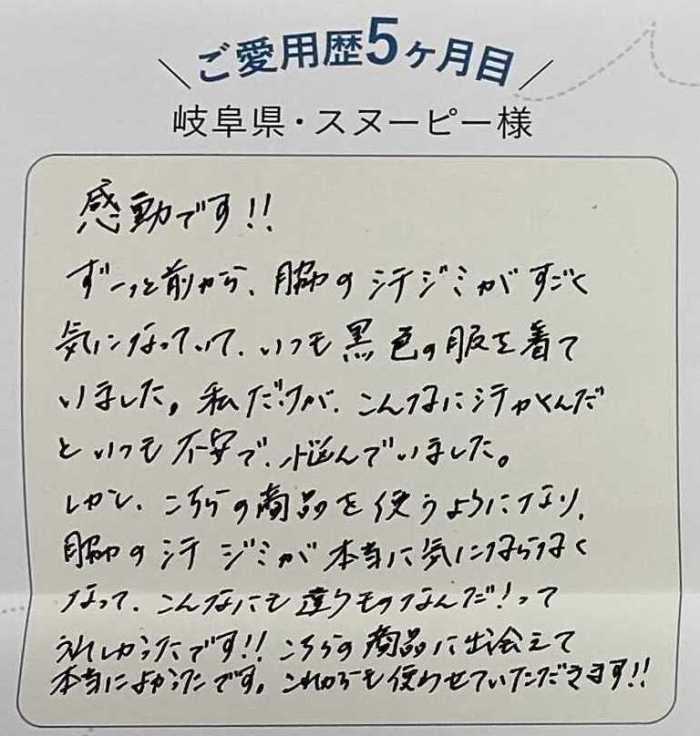 ご愛用歴5ヶ月目
岐阜県・スヌーピー様
感動です!!
ずーっと前から、脇の汗ジミがすごく
気になっていて、いつも黒色の服を着て
いました。私だけが、こんなに汗かくんだ
といつも不安で、悩んでいました。
しかし、こちらの商品を使うようになり、
脇の汗ジミが本当に気にならなく
なって、こんなにも違うものなんだ!って
うれしかったです!!こちらの商品に出会えて
本当によかったです。これからも使わせていただきます!!